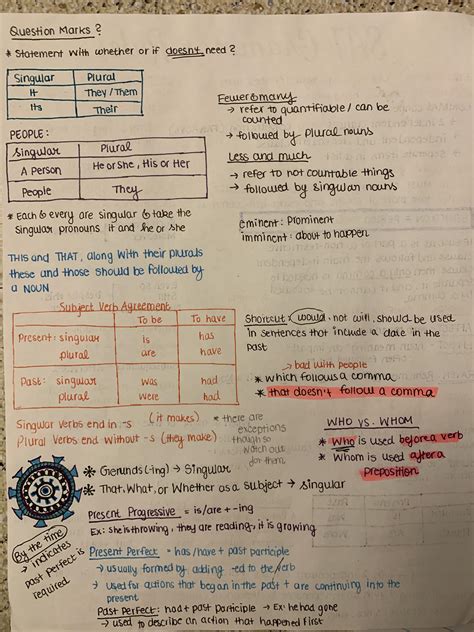 Question Marks ?
* Statement with whether or if doesnt need ?
Singular Plural
It They / Them
Its Their
PEOPLE:
Singular Plural
A Person He or She, His or Her
People They
* Each & every are singular & take the
Singular pronouns it and he or she
THIS and THAT, along with their plurals
these and those should be followed by
a NOUN.
Fewer & many
→ refer to quantifiable / can be
counted
→ followed by plural nouns
Less and much
→ refer to not countable things
→ followed by singular nouns
eminent: Prominent
imminent: about to happen
Subject Verb Agreement
To be To have
Present: singular is has
plural are have
Past: singular was had
plural were had
Singular Verbs end in -s (it makes)
Plural Verbs end without -s (they make)
* there are
exceptions
though so
watch out
for them.
Shortcut: would, not will, should be used
In sentences that include a date in the
past
→ bad with people
* which follows a comma
* that doesn't follow a comma
WHO VS. WHOM
* Who is used before a verb
* Whom is used after a
preposition
* Gerunds (-ing) → Singular
* That, What, or Whether as a subject → singular
Present Progressive = is/are + -ing
Ex: she is throwing, they are reading, it is growing
By the time
→ indicates
past perfect is
required.
Present Perfect = has/have + past participle
→ usually formed by adding -ed to the verb
→ used for actions that began in the past + are continuing into the
present
Past Perfect: had + past participle → Ex: he had gone
→ used to describe an action that happened first